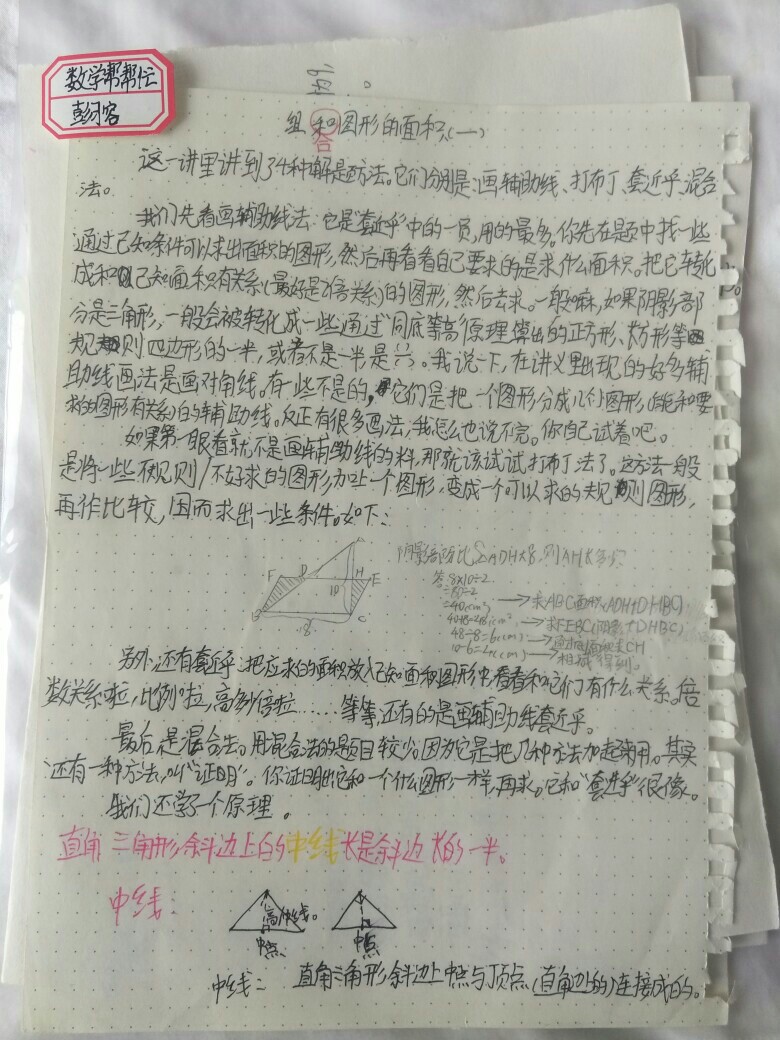 数学帮帮忙
彭予容
组和图形的面积(一)
合
这一讲里讲到了4种解是方法。它们分别是:画辅助线、打布丁、套近乎、混合
法。
我们先看画辅助线法:它是"套近乎"中的一员,用的最多。你先在题中找一些
通过已知条件可以求出面积的图形,然后再看看自己要求的是求什么面积。把它转化
成和已知面积有关系(最好是倍关系)的图形,然后去求。一般嘛,如果阴影部
分是三角形,一般会被转化成一些通过"同底等高"原理算出的正方形、长方形等
规则四边形的一半,或者不是一半是六分。我说一下,在讲义里出现的好多辅
助线画法是画对角线。有一些不是的,它们是把一个图形分成几个图形(能和要
求的图形有关系)的辅助线。反正有很多画法,我怎么也说不完。你自己试着吧。
如果第一眼看就不是画辅助线的料,那就该试试打布丁法了。这方法一般
是将一些不规则/不好求的图形加上一个图形,变成一个可以求的规则图形,
再作比较,因而求出一些条件。如下:
F D H E
10
B 8 C
阴影部分比S△ADH大8,则AH长多少?
答:8×10÷2
=80÷2
=40(cm²) → 求ABC面积(ADH+DHBC)
40+8=48(cm²) → 求FEBC(阴影+DHBC)
48÷8=6(cm) → 通过面积求CH
10-6=4(cm) → 相减得到。
另外还有套近乎:把应求的面积放入已知面积图形中,看看和它们有什么关系。倍
数关系啦,比例啦,高多少倍啦……等等,还有的是画辅助线套近乎。
最后是混合法。用混合法的题目较少。因为它是把几种方法加起来用。其实
还有一种方法,叫"证明"。你证明出它和一个什么图形一样,再求。它和"套近乎"很像。
我们还学了个原理。
直角三角形斜边上的中线长是斜边长的一半。
中线:
高/中线。
中点 中点
中线: 直角三角形斜边上中点与顶点(直角边的)连接成的。